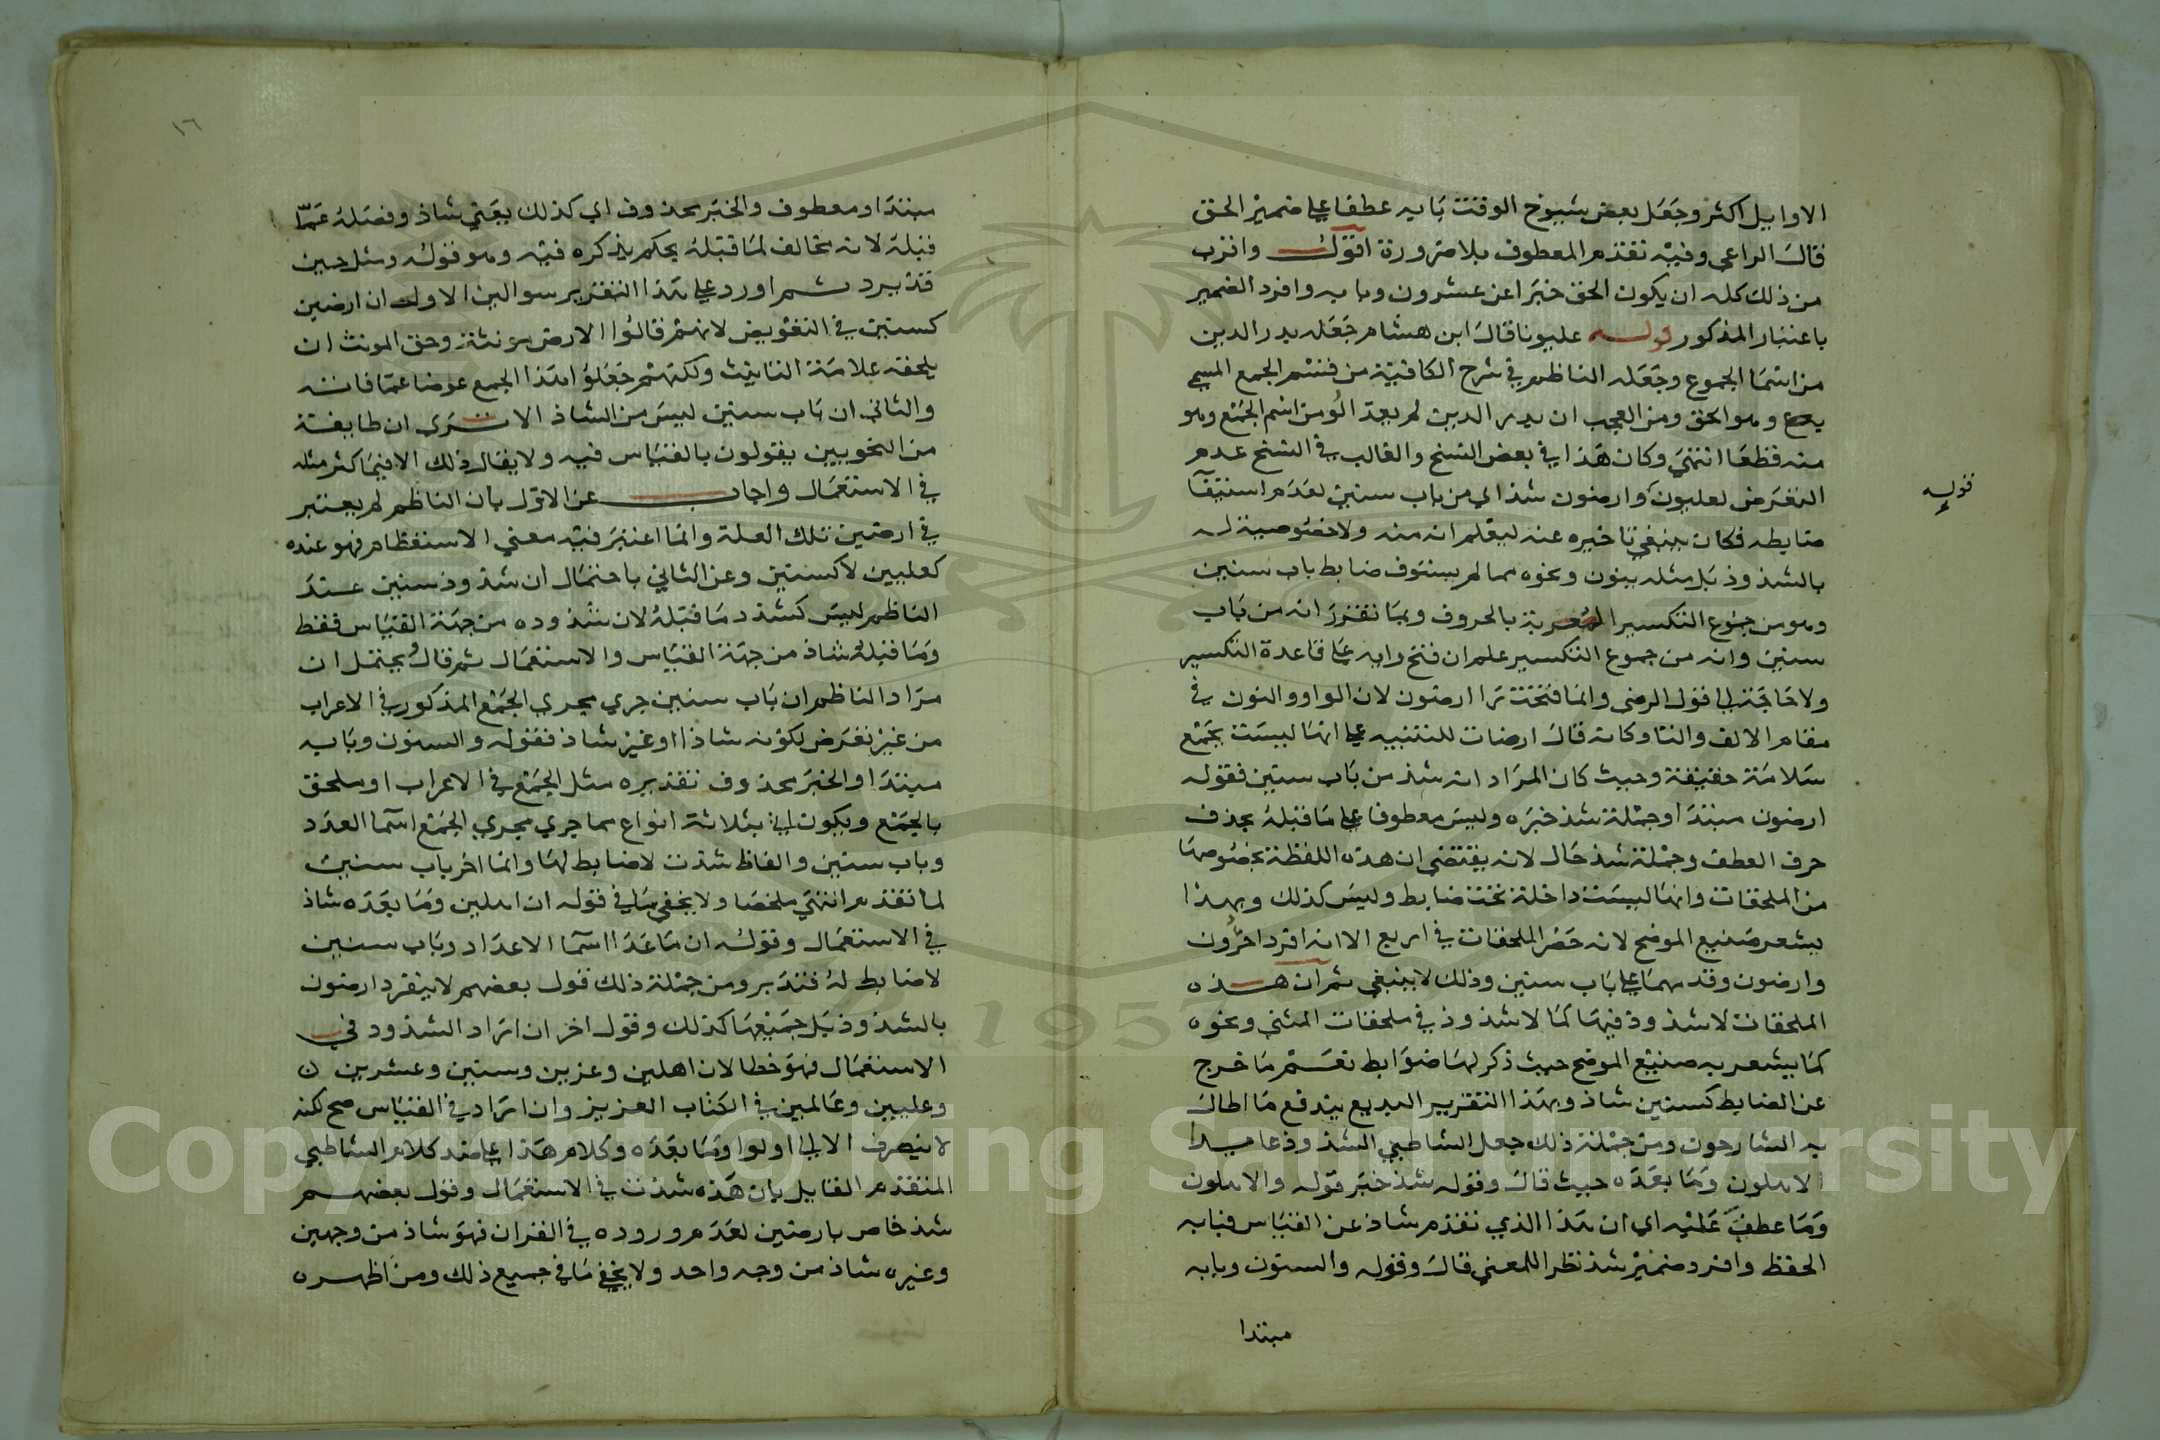 الاوايل اكثر وجعل بعض شيوخ الوقت بابه عطفا على ضمير الحق
قال الراعي وفيه تقدم المعطوف بلا ضرورة اقول واقرب
من ذلك كله ان يكون الحق خبرا عن عشرون وبابه وافرد الضمير
باعتبار المذكور قوله عليونا قال ابن هشام جعله بدر الدين
من اسما الجموع وجعله الناظم في شرح الكافية من قسم الجمع المسمى
به وهو الحق ومن العجب ان بدر الدين لم يعد الو من اسم الجمع وهو
منه قطعا انتهى وكان هذا في بعض النسخ والغالب في النسخ عدم
التعرض لعليون وارضون شذ اي من باب سنين لعدم استيفا
ضابطه فكان ينبغي تاخيره عنه ليعلم انه منه ولا خصوصية له
بالشذوذ بل مثله بنون ونحوه مما لم يستوف ضابط باب سنين
وهو من جموع التكسير المعربة بالحروف وبما تقرر انه من باب
سنين وانه من جموع التكسير علم ان فتح رايه على قاعدة التكسير
ولا حاجة الى قول الرضي وانما فتحت را ارضون لان الواو والنون في
مقام الالف والتا وكانه قال ارضات للتنبيه على انها ليست بجمع
سلامة حقيقة وحيث كان المراد انه شذ من باب سنين فقوله
ارضون مبتدا وجملة شذ خبره وليس معطوفا على ما قبله بحذف
حرف العطف وجملة شذ حال لانه يقتضي ان هذه اللفظة بخصوصها
من الملحقات وانها ليست داخلة تحت ضابط وليس كذلك وبهذا
يشعر صنيع الموضح لانه حصر الملحقات في اربع الا انه افرد احرون
وارضون وقدمهما على باب سنين وذلك لا ينبغي ثم ان هذه
الملحقات لا شذوذ فيها كما لا شذوذ في ملحقات المثنى ونحوه
كما يشعر به صنيع الموضح حيث ذكر لها ضوابط نعم ما خرج
عن الضابط كسنين شاذ وبهذا التقرير البديع يندفع ما اطال
به الشارحون ومن جملة ذلك جعل الشاطبي الشذوذ عاما
الاهلون وما بعده حيث قال وقوله شذ خبر قوله والاهلون
وما عطف عليه اي ان هذا الذي تقدم شاذ عن القياس فبابه
الحفظ وافرد ضمير شذ نظرا للمعنى قال وقوله والسنون وبابه
مبتدا
قوله
١٦
مبتدا ومعطوف والخبر محذوف اي كذلك يعني شاذ وفصله عما
قبله لانه مخالف لما قبله بحكم يذكره فيه وهو قوله ومثل حين
قد يرد ثم اورد على هذا التقرير سوالين الاول ان ارضين
كسنين في التعويض لانهم قالوا الارض مونثة وحق المونث ان
يلحقه علامة التانيث ولكنهم جعلوا هذا الجمع عوضا عما فاته
والثاني ان باب سنين ليس من الشاذ الا ترى ان طايفة
من النحويين يقولون بالقياس فيه ولا يقال ذلك الا فيما كثر مثله
في الاستعمال واجاب عن الاول بان الناظم لم يعتبر
في ارضين تلك العلة وانما اعتبر فيه معنى الاستعظام فهو عنده
كعليين لا كسنين وعن الثاني باحتمال ان شذوذ سنين عند
الناظم ليس كشذوذ ما قبله لان شذوذه من جهة القياس فقط
وما قبله شاذ من جهة القياس والاستعمال ثم قال ويحتمل ان
مراد الناظم ان باب سنين جري مجري الجمع المذكور في الاعراب
من غير تعرض لكونه شاذا او غير شاذ فقوله والسنون وبابه
مبتدا والخبر محذوف تقديره مثل الجمع في الاعراب او ملحق
بالجمع ويكون اتى بثلاثة انواع مما جري مجري الجمع اسما العدد
وباب سنين والفاظ شذت لا ضابط لها وانما اخر باب سنين
لما تقدم انتهى ملخصا ولا يخفى ما في قوله ان اهلين وما بعده شاذ
في الاستعمال وقوله ان ما عدا اسما الاعداد وباب سنين
لا ضابط له فتدبر ومن جملة ذلك قول بعضهم لا ينفرد ارضون
بالشذوذ بل جميعها كذلك وقول اخر ان اراد الشذوذ في
الاستعمال فهو خطا لان اهلين وعزين وسنين وعشرين
وعليين وعالمين في الكتاب العزيز وان اراد في القياس صح لكنه
لا ينصرف الا الى اولوا وما بعده وكلام هذا على ضد كلام الشاطبي
المتقدم القايل بان هذه شذت في الاستعمال وقول بعضهم
شذ خاص بارضين لعدم وروده في القران فهو شاذ من وجهين
وغيره شاذ من وجه واحد ولا يخفى ما في جميع ذلك ومن اظهره
Copyright © King Saud University
1957